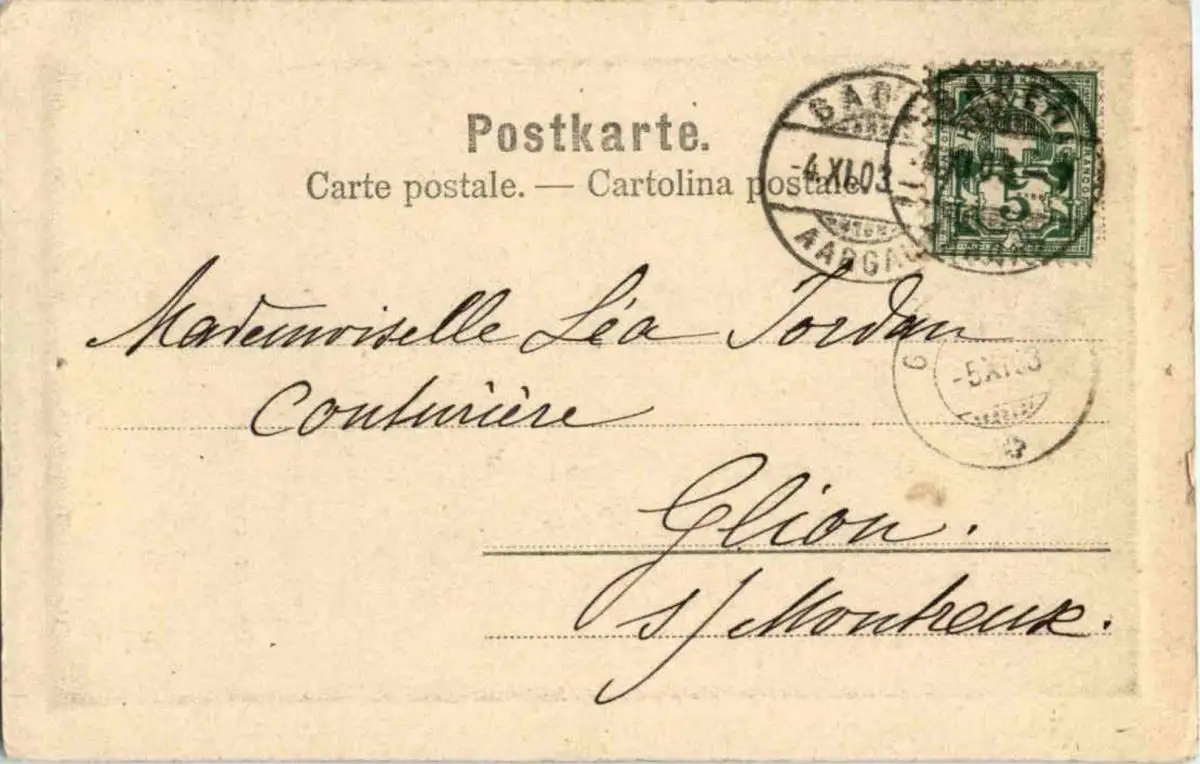 Postkarte.
Carte postale. — Cartolina postale.
BADEN
-4.XI.03
AARGAU
5
-5.XI.03
Mademoiselle Léa Jordan
Couturière
Glion.
s/ Montreux.